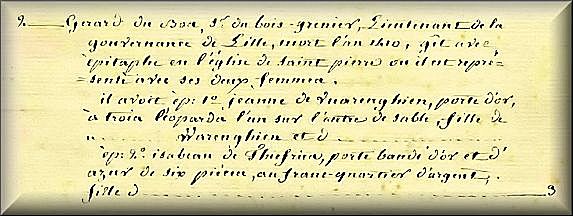 2 Gerard du Bos, Sr. du bois-grenier, Lieutenant de la
gouvernance de Lille, mort l'an 1510, gît avec
épitaphe en l'église de saint pierre ou il est repré-
=senté avec ses deux femmes.
il avoit ép: 1o. jeanne de Vuarenghien, porte d'or,
à trois léopards l'un sur l'autre de sable, fille de
n Warenghien et d
ép: 2o. isabeau de porte bandé d'or et d'
azur de six pièces, au franc-quartier d'argent,
fille d 3